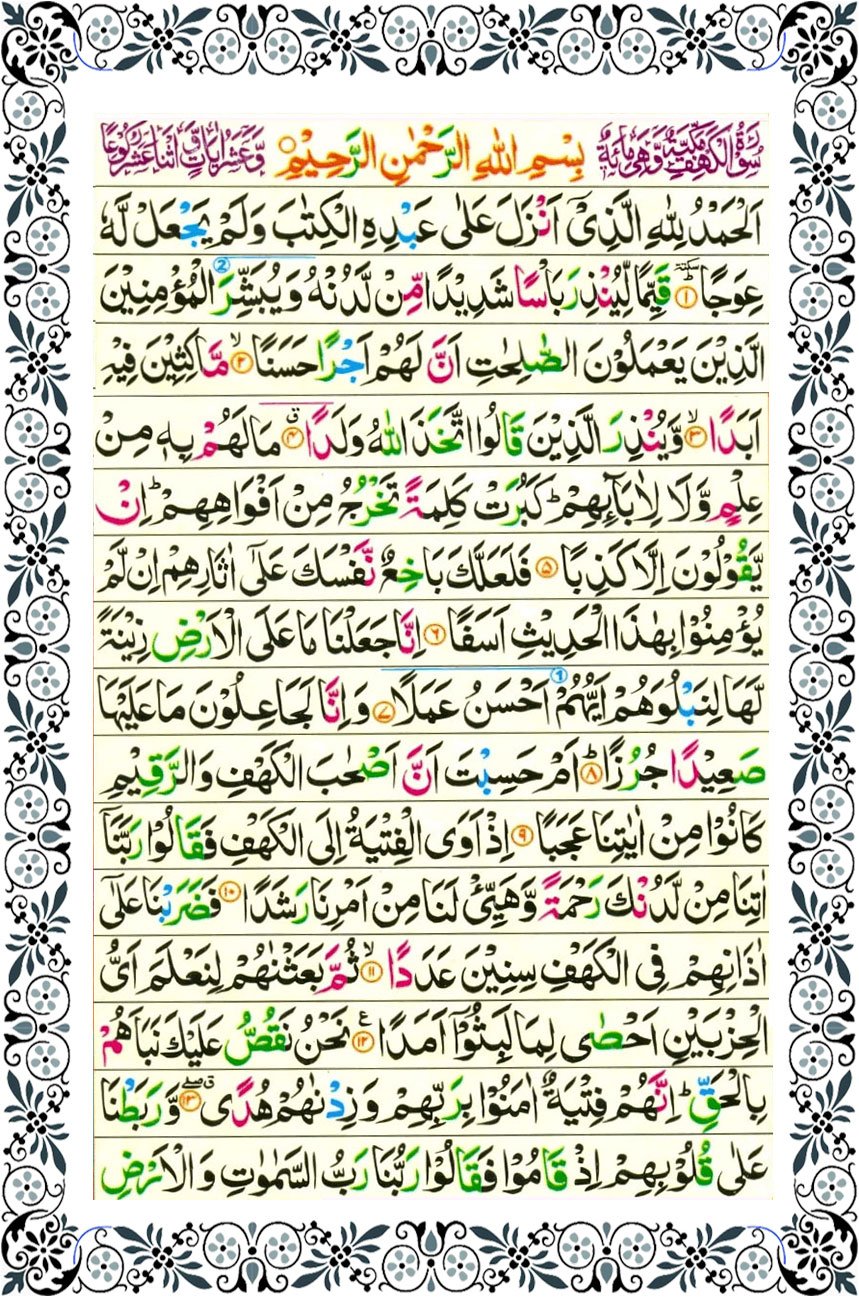 سُوْرَةُ الْكَهْفِ مَكِّيَّةٌ وَّهِيَ مِائَةٌ بِسْمِ اللهِ الرَّحْمٰنِ الرَّحِيْمِ وَّعَشْرُ اٰيَاتٍ وَّ اثْنَا عَشَرَ رُكُوْعًا
اَلْحَمْدُ لِلّٰهِ الَّذِیْۤ اَنْزَلَ عَلٰى عَبْدِهِ الْكِتٰبَ وَلَمْ یَجْعَلْ لَّهٗ
عِوَجًا ؕ سكتة ۱ قَیِّمًا لِّیُنْذِرَ بَاْسًا شَدِیْدًا مِّنْ لَّدُنْهُ وَ یُبَشِّرَ 2 الْمُؤْمِنِیْنَ
الَّذِیْنَ یَعْمَلُوْنَ الصّٰلِحٰتِ اَنَّ لَهُمْ اَجْرًا حَسَنًا ۙ ۲ مَّاكِثِیْنَ فِیْهِ
اَبَدًا ۙ ۳ وَّ یُنْذِرَ الَّذِیْنَ قَالُوا اتَّخَذَ اللهُ وَلَدًا ۗ ۴ مَا لَهُمْ بِهٖ مِنْ
عِلْمٍ وَّلَا لِاٰبَآىِٕهِمْ ؕ كَبُرَتْ كَلِمَةً تَخْرُجُ مِنْ اَفْوَاهِهِمْ ؕ اِنْ
یَّقُوْلُوْنَ اِلَّا كَذِبًا ۵ فَلَعَلَّكَ بَاخِعٌ نَّفْسَكَ عَلٰۤى اٰثَارِهِمْ اِنْ لَّمْ
یُؤْمِنُوْا بِهٰذَا الْحَدِیْثِ اَسَفًا ۶ اِنَّا جَعَلْنَا مَا عَلَى الْاَرْضِ زِیْنَةً
لَّهَا لِنَبْلُوَهُمْ اَیُّهُمْ 1 اَحْسَنُ عَمَلًا ۷ وَ اِنَّا لَجَاعِلُوْنَ مَا عَلَیْهَا
صَعِیْدًا جُرُزًا ؕ ۸ اَمْ حَسِبْتَ اَنَّ اَصْحٰبَ الْكَهْفِ وَ الرَّقِیْمِ
كَانُوْا مِنْ اٰیٰتِنَا عَجَبًا ۹ اِذْ اَوَى الْفِتْیَةُ اِلَى الْكَهْفِ فَقَالُوْا رَبَّنَاۤ
اٰتِنَا مِنْ لَّدُنْكَ رَحْمَةً وَّ هَیِّئْ لَنَا مِنْ اَمْرِنَا رَشَدًا ۱۰ فَضَرَبْنَا عَلٰۤى
اٰذَانِهِمْ فِی الْكَهْفِ سِنِیْنَ عَدَدًا ۙ ۱۱ ثُمَّ بَعَثْنٰهُمْ لِنَعْلَمَ اَیُّ
الْحِزْبَیْنِ اَحْصٰى لِمَا لَبِثُوْۤا اَمَدًا ۱۲ ع نَحْنُ نَقُصُّ عَلَیْكَ نَبَاَهُمْ
بِالْحَقِّ ؕ اِنَّهُمْ فِتْیَةٌ اٰمَنُوْا بِرَبِّهِمْ وَ زِدْنٰهُمْ هُدًى ۱۳ وَّ رَبَطْنَا
عَلٰى قُلُوْبِهِمْ اِذْ قَامُوْا فَقَالُوْا رَبُّنَا رَبُّ السَّمٰوٰتِ وَ الْاَرْضِ